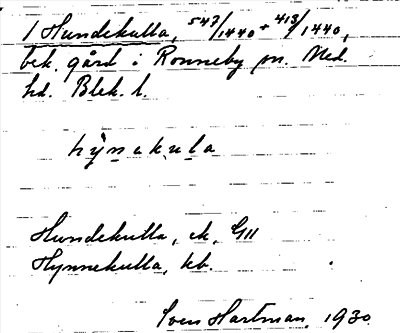 1 Hundekulla, 547/1440 + 413/1440,
bek. gård i Ronneby sn. Med.
hd. Blek. l.
hȳnekula
Hundekulla, ek. G11
Hynnekulla, kb.
Sven Hartman 1930